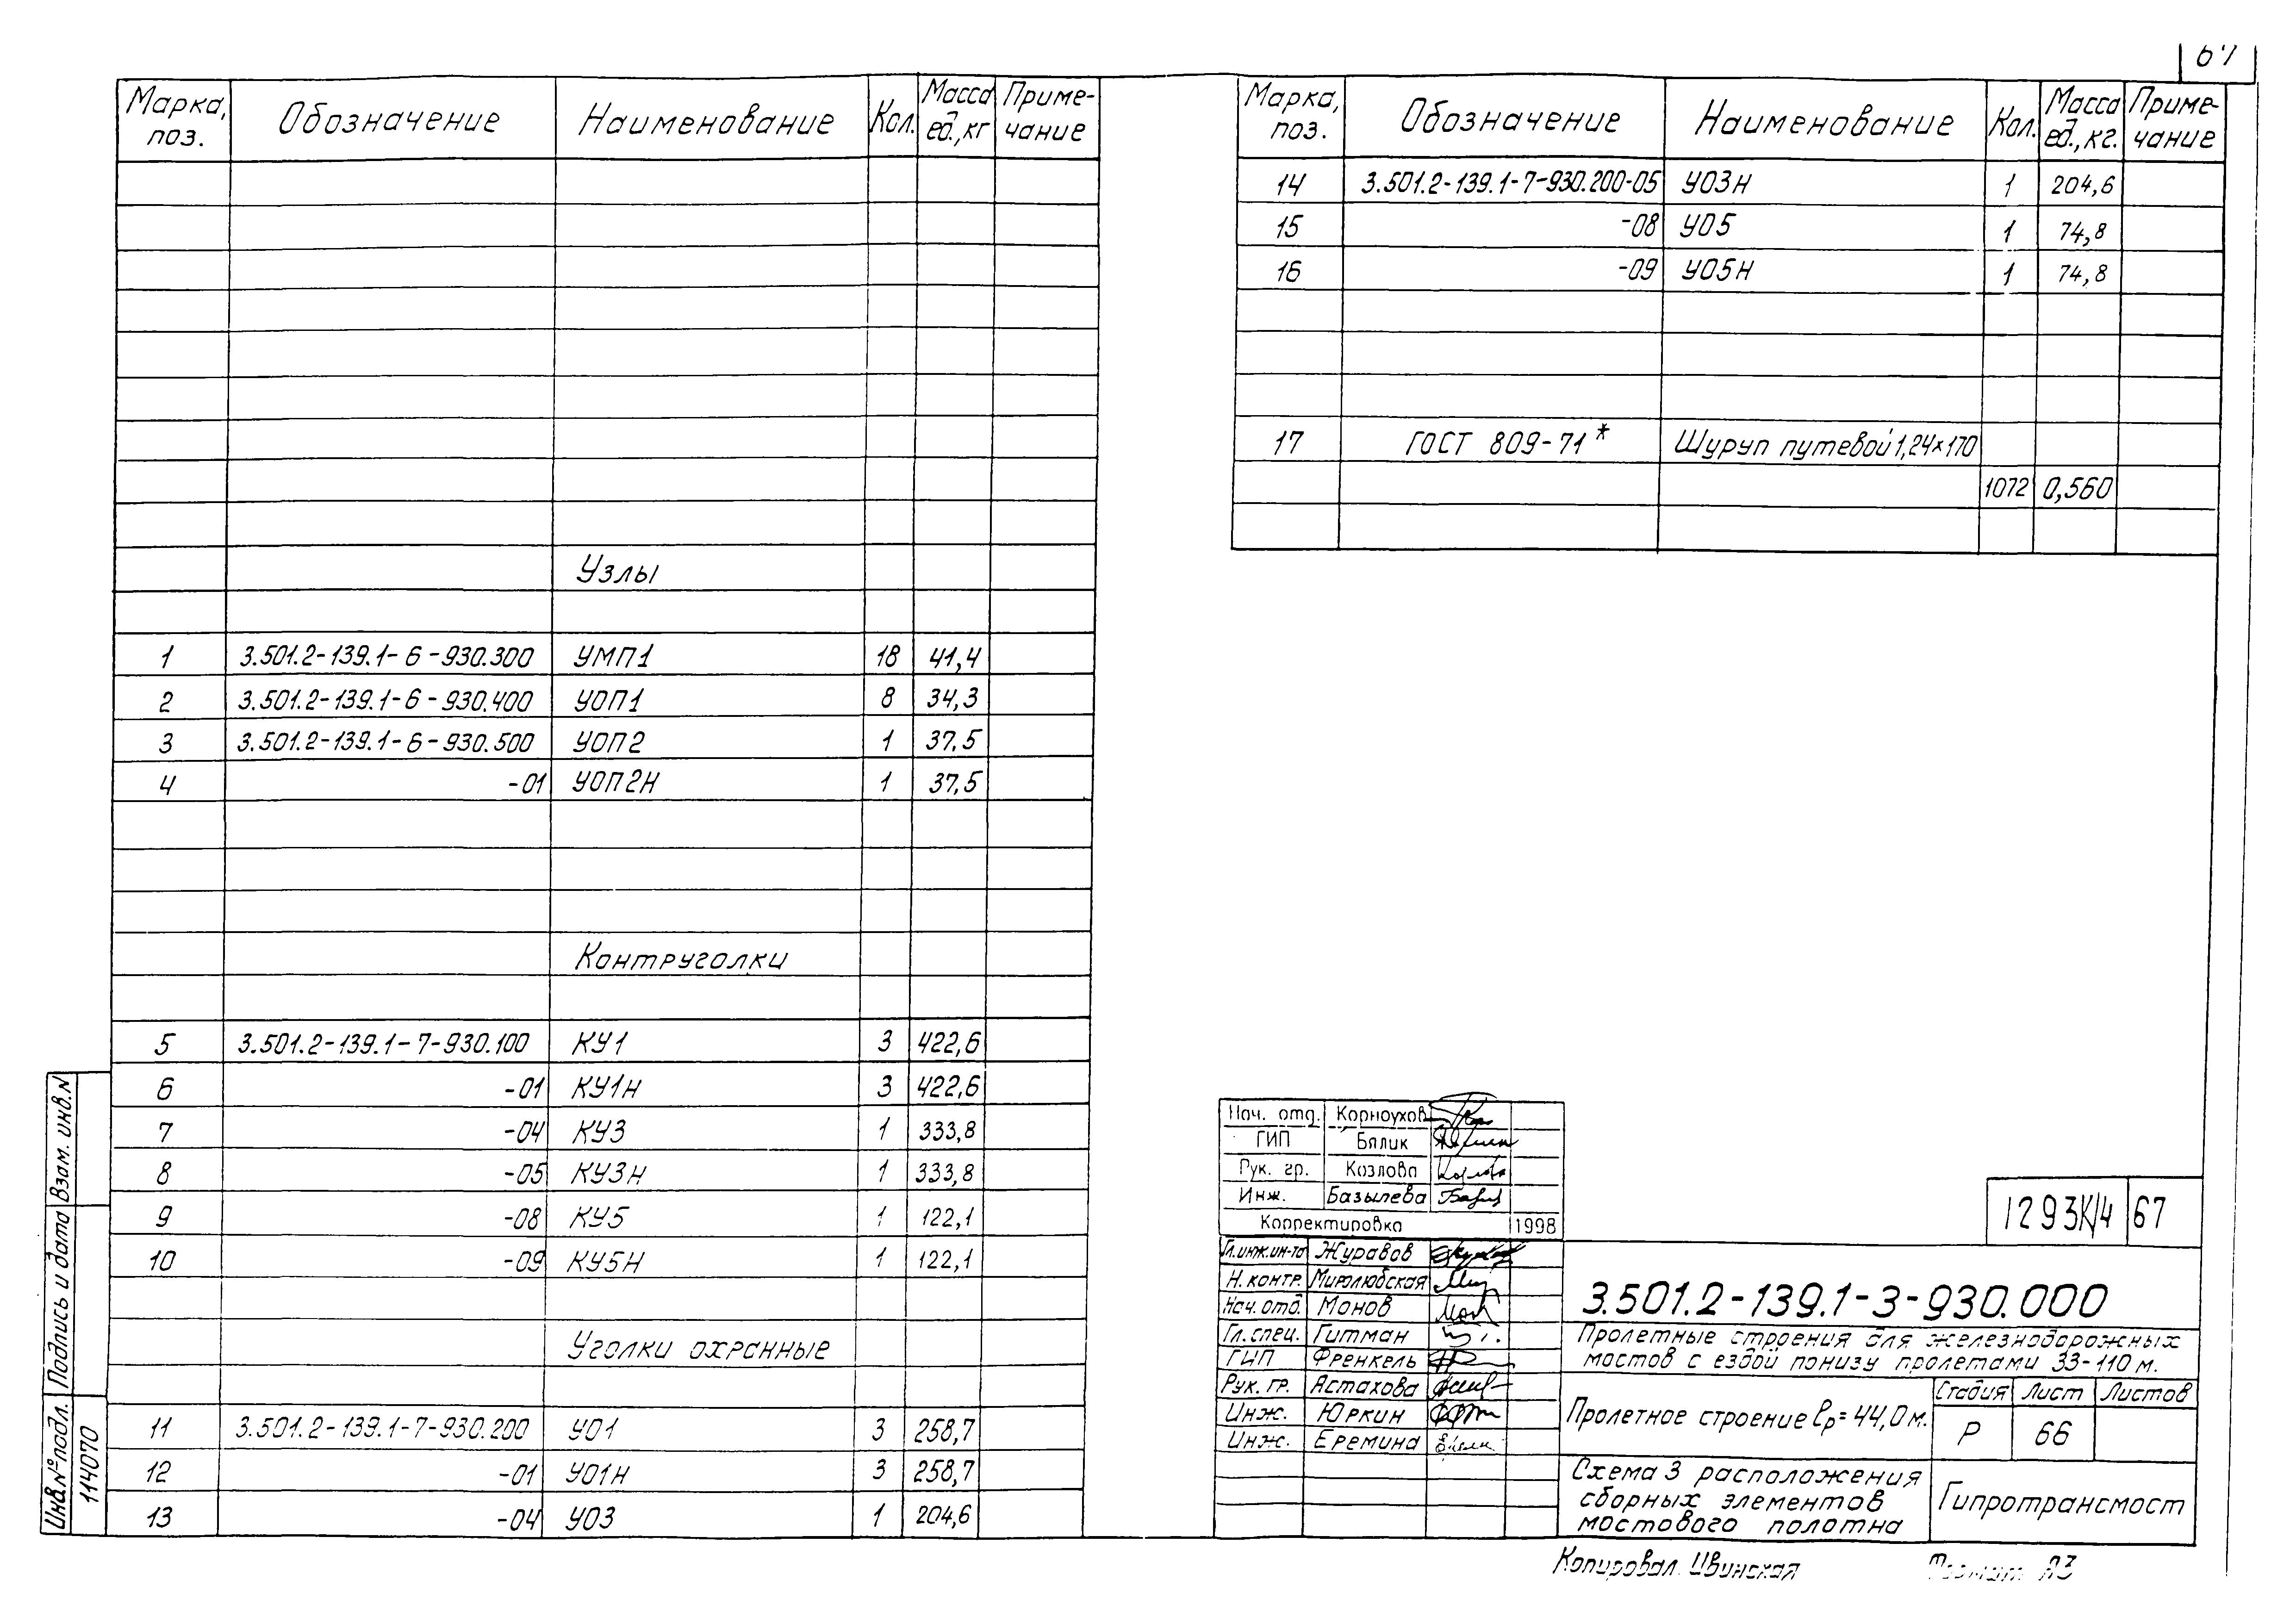 67
Марка, поз. Обозначение Наименование Кол. Масса ед.,кг Приме-чание
Узлы
1 3.501.2-139.1-6-930.300 УМП1 18 41,4
2 3.501.2-139.1-6-930.400 УОП1 8 34,3
3 3.501.2-139.1-6-930.500 УОП2 1 37,5
4 -01 УОП2Н 1 37,5
Контруголки
5 3.501.2-139.1-7-930.100 КУ1 3 422,6
6 -01 КУ1Н 3 422,6
7 -04 КУ3 1 333,8
8 -05 КУ3Н 1 333,8
9 -08 КУ5 1 122,1
10 -09 КУ5Н 1 122,1
Уголки охранные
11 3.501.2-139.1-7-930.200 УО1 3 258,7
12 -01 УО1Н 3 258,7
13 -04 УО3 1 204,6
Марка, поз. Обозначение Наименование Кол. Масса ед.,кг. Приме-чание
14 3.501.2-139.1-7-930.200-05 УО3Н 1 204,6
15 -08 УО5 1 74,8
16 -09 УО5Н 1 74,8
17 ГОСТ 809-71* Шуруп путевой 1,24×170
1072 0,560
Нач. отд. Корноухов
ГИП Бялик
Рук. гр. Козлова
Инж. Базылева
Корректировка 1998
Гл.инж.ин-та Журавов
Н.контр. Миролюбская
Нач.отд. Монов
Гл.спец. Гитман
ГИП Френкель
Рук. гр. Астахова
Инж. Юркин
Инж. Еремина
1293К/4 67
3.501.2-139.1-3-930.000
Пролетные строения для железнодорожных
мостов с ездой понизу пролетами 33-110 м.
Пролетное строение ℓр= 44,0 м.
Стадия Лист Листов
Р 66
Схема 3 расположения
сборных элементов
мостового полотна
Гипротрансмост
Копировал. Ивинская
Формат А3
Инв.№подл. Подпись и дата Взам. инв.N
1114070